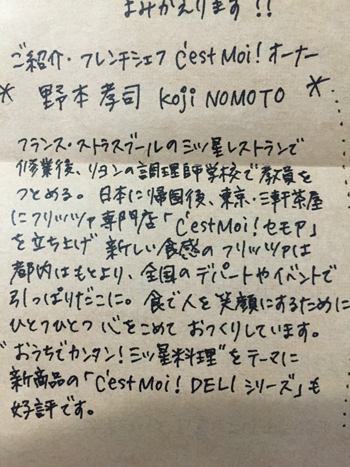 よみがえります!!
ご紹介・フレンチシェフ C'est Moi! オーナー
* 野本孝司 Koji NOMOTO *
フランス・ストラスブールの三ッ星レストランで
修業後、リヨンの調理師学校で教員を
つとめる。日本に帰国後、東京・三軒茶屋
にフリッツァ専門店「C'est Moi! セモア」
を立ち上げ 新しい食感のフリッツァは
都内はもとより、全国のデパートやイベントで
引っぱりだこに。食で人を笑顔にするために
ひとつひとつ 心をこめて おつくりしています。
"おうちでカンタン!三ッ星料理"をテーマに
新商品の「C'est Moi! DELI シリーズ」も
好評です。